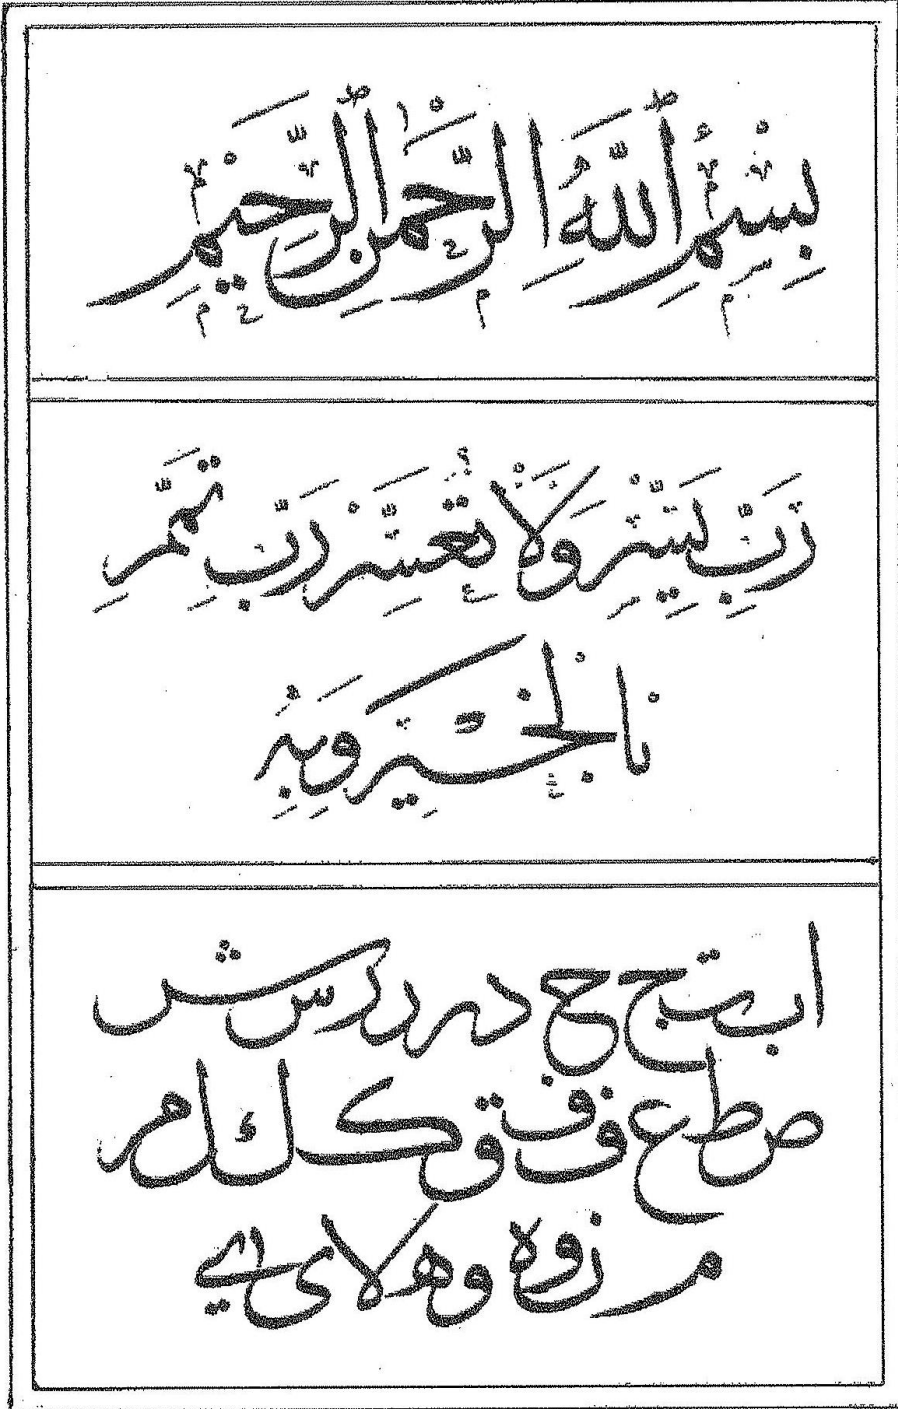 بِسْمِ ٱللَّهِ الرَّحْمَنِ ٱلرَّحِيْمِ
رَبِّ يَسِّرْ وَلَا تُعَسِّرْ رَبِّ تَمِّمْ
بالْخَيْرِ وَبِهِ
ا ب ت ج ح د ر د ر س ش
ص ط ع ف ف ق ک ك ل م
م ن و ه و ه لا ى ي